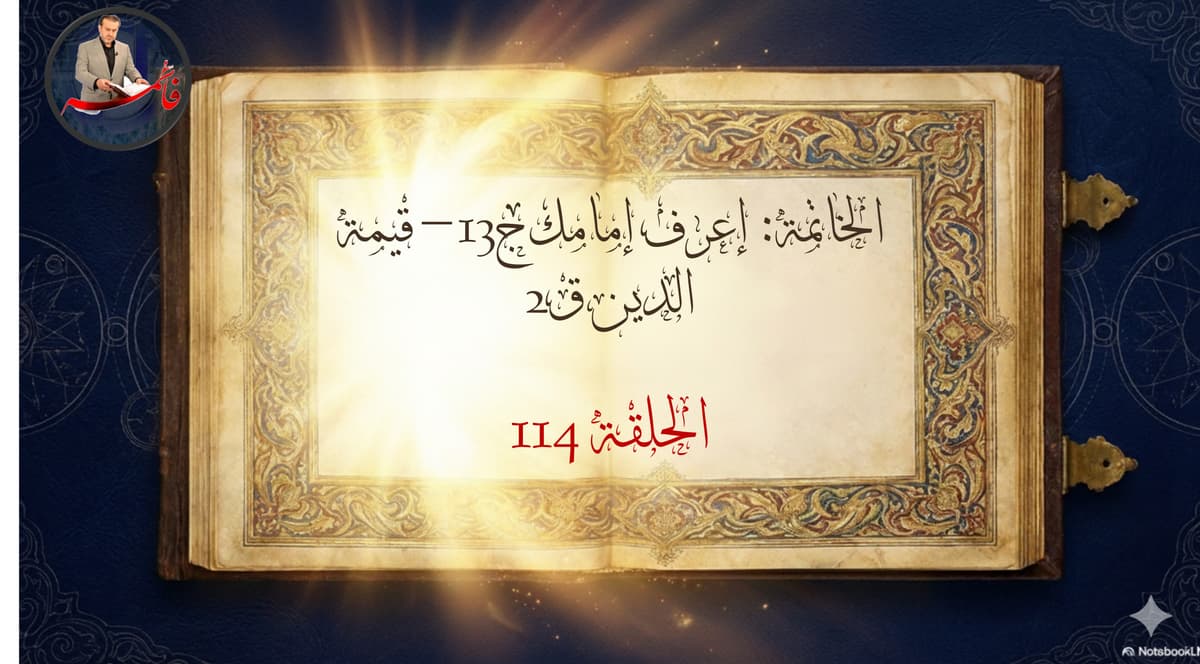 فاطمة
الخاتمة: إعرف إمامك ج13 – قيمة
الدين ق2
الحلقة 114
NotsbookL